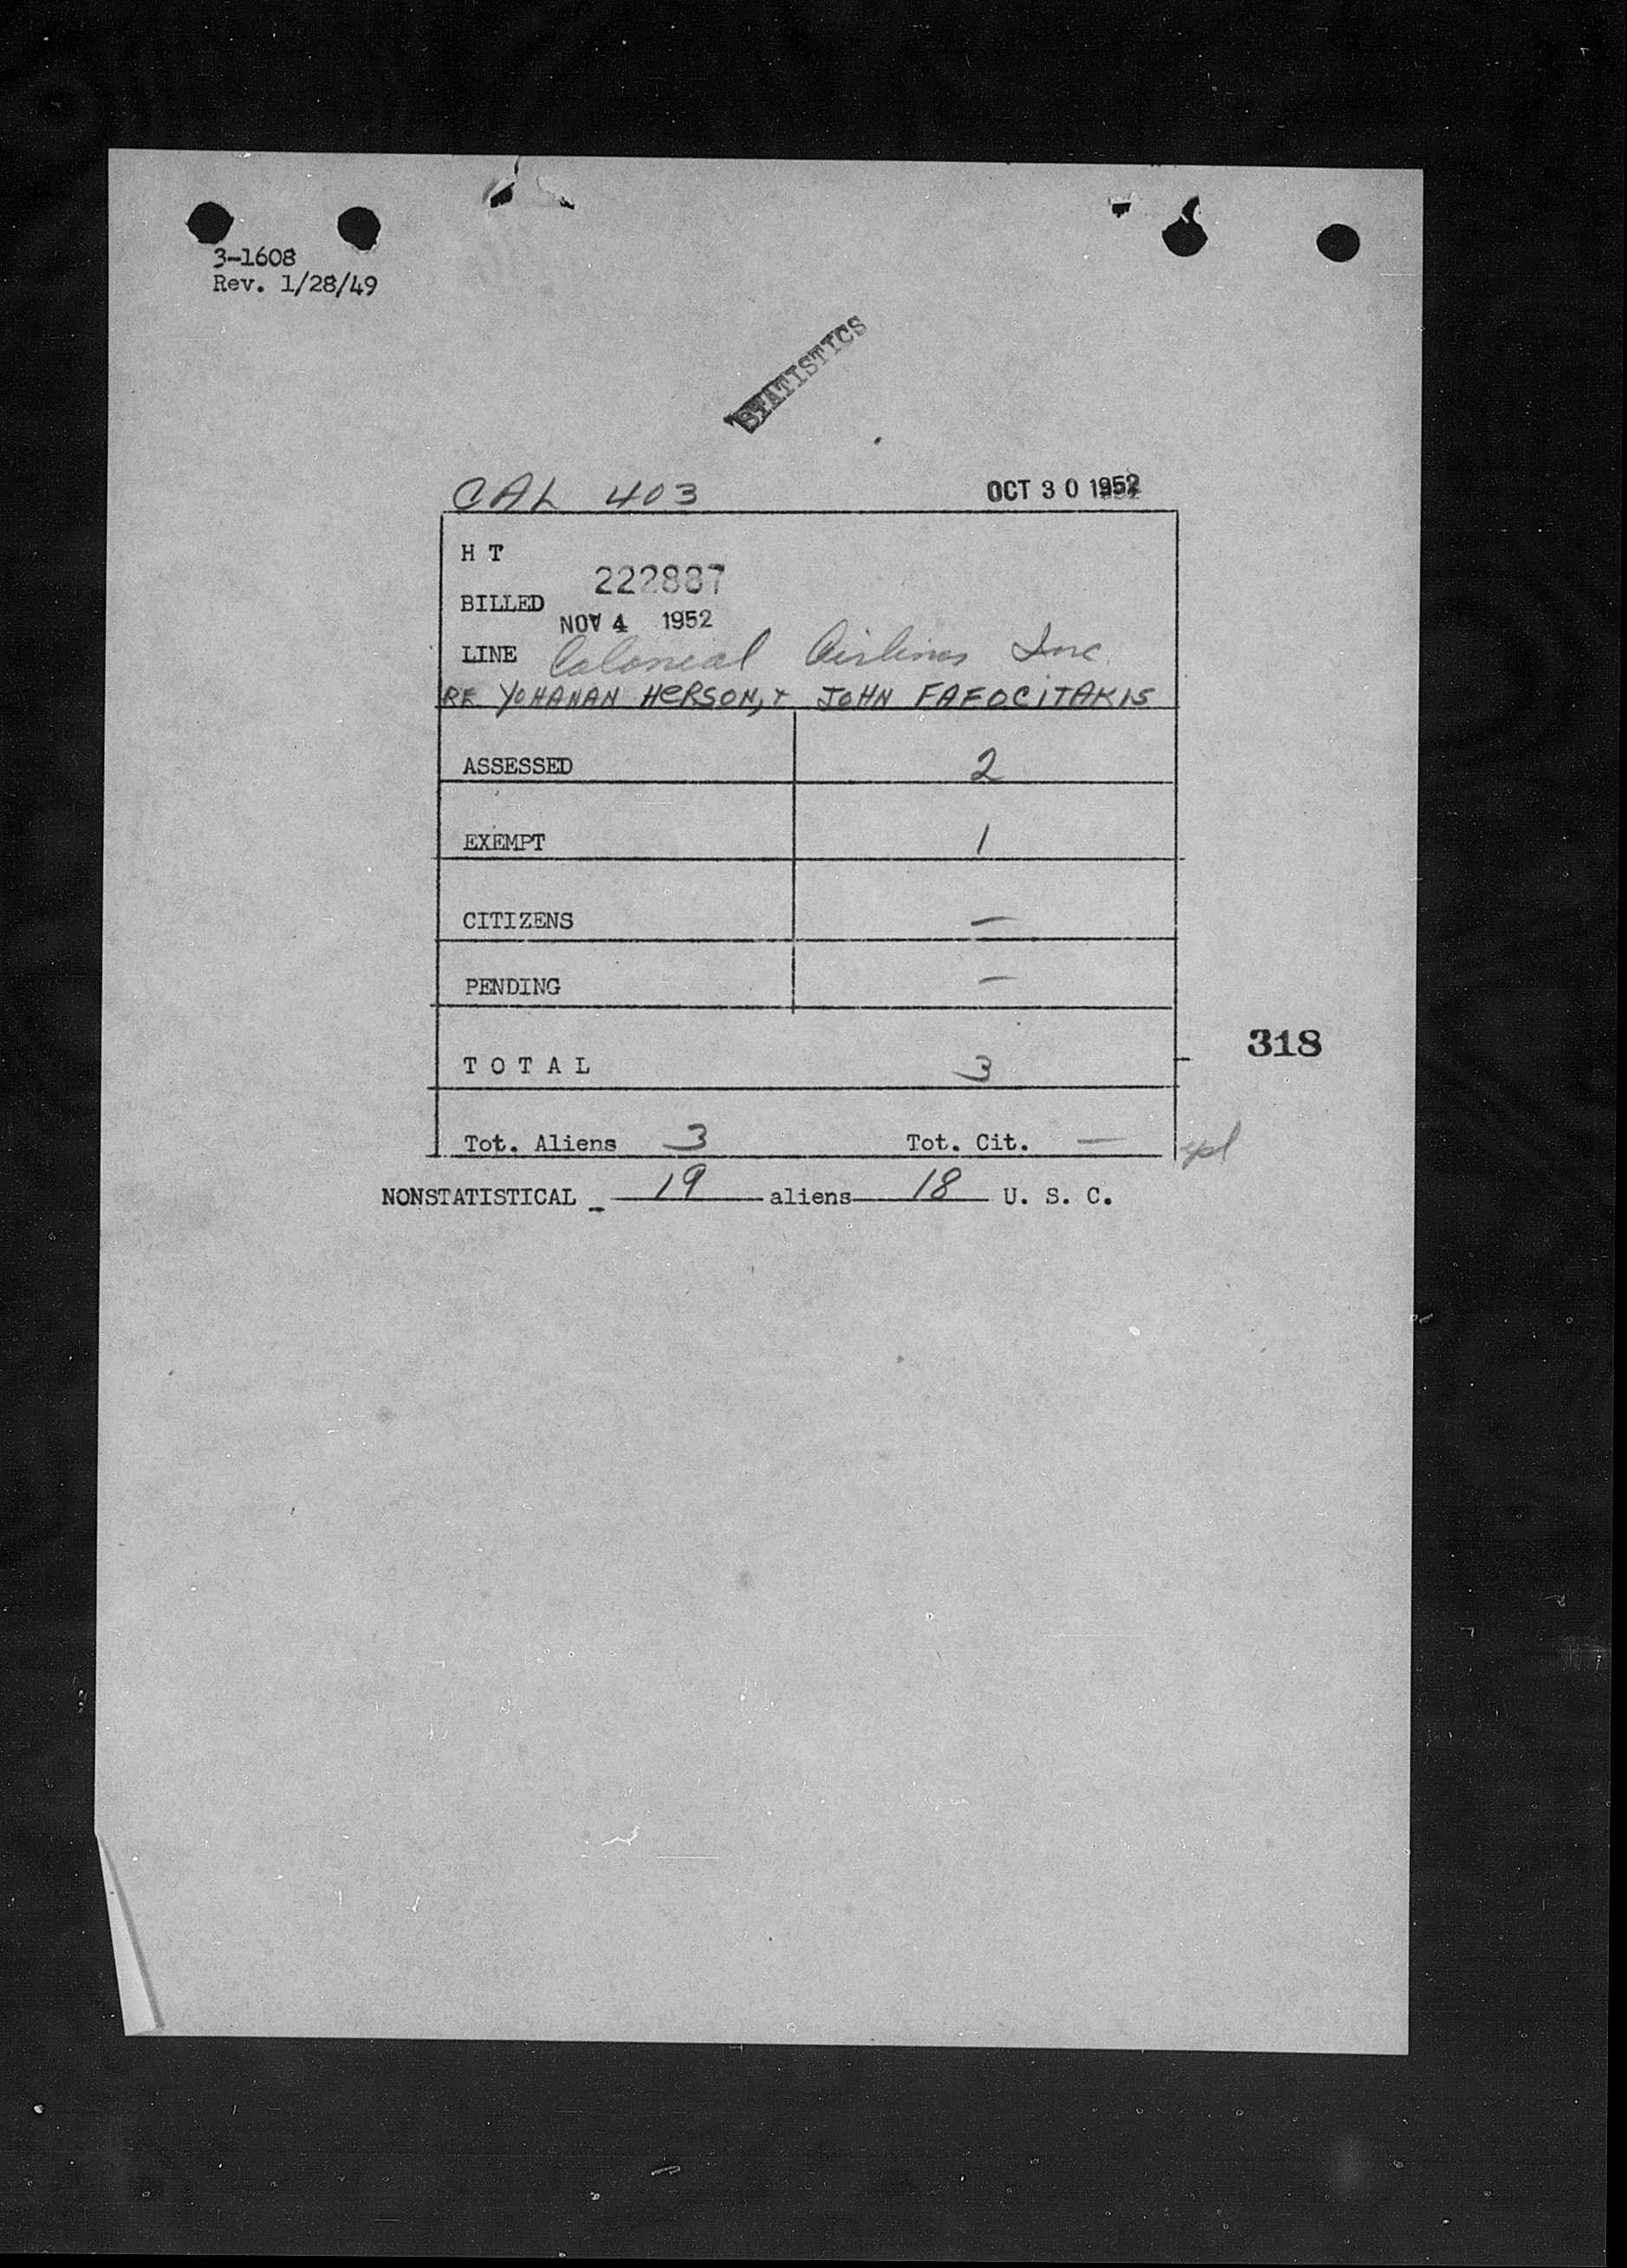 3-1608
Rev. 1/28/49
STATISTICS
CAL 403 OCT 30 1952
H T
222887
BILLED
NOV 4 1952
LINE Colonial Airlines Inc.
RE YOHANAN HERSON, + JOHN FAFOCITAKIS
ASSESSED 2
EXEMPT 1
CITIZENS —
PENDING —
318
T O T A L 3
Tot. Aliens 3 Tot. Cit. —
NONSTATISTICAL - 19 aliens 18 U. S. C.